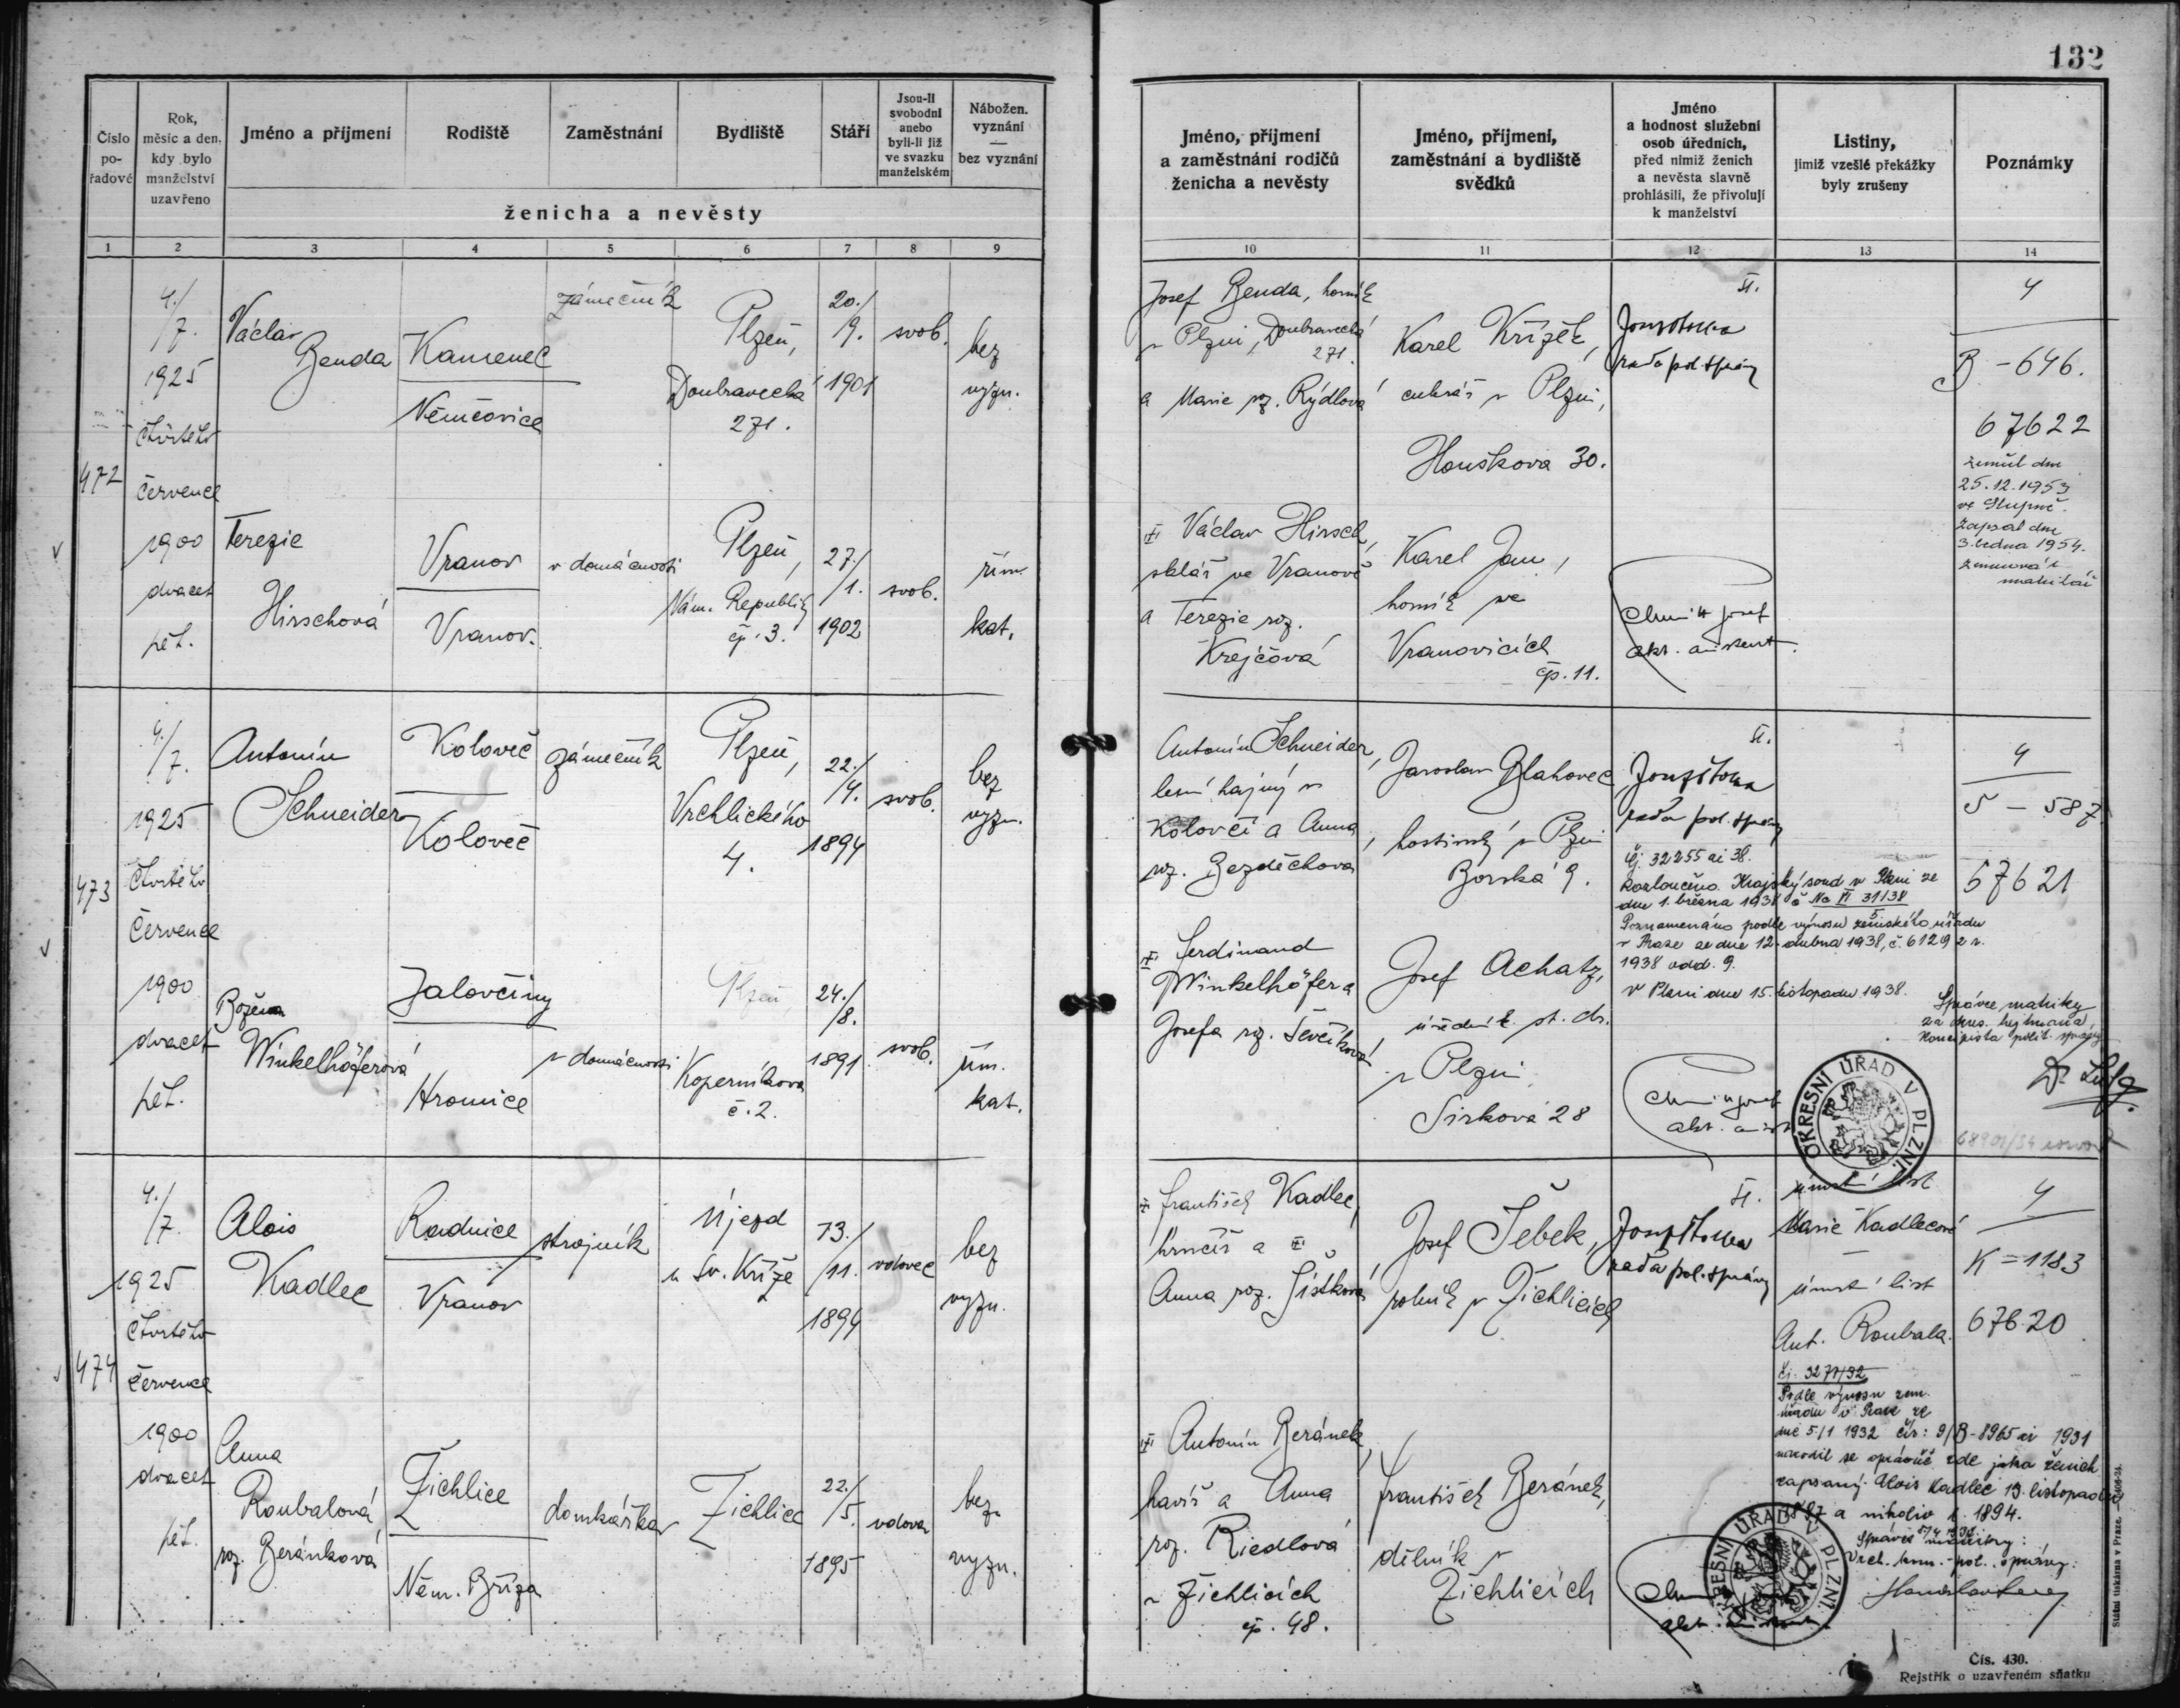 132
Číslo
po-
řadové
Rok,
měsíc a den,
kdy bylo
manželství
uzavřeno
Jméno a příjmení
Rodiště
Zaměstnání
Bydliště
Stáří
Jsou-li
svobodni
anebo
byli-li již
ve svazku
manželském
Nábožen.
vyznání
—
bez vyznání
ženicha a nevěsty
1 2 3 4 5 6 7 8 9
Jméno, příjmení
a zaměstnání rodičů
ženicha a nevěsty
Jméno, příjmení,
zaměstnání a bydliště
svědků
Jméno
a hodnost služební
osob úředních,
před nimiž ženich
a nevěsta slavně
prohlásili, že přivolují
k manželství
Listiny,
jimiž vzešlé překážky
byly zrušeny
Poznámky
10 11 12 13 14
472
4./
/7.
1925
čtvrtého
července
1900
dvacet
pět.
Václav
Benda
Kamenec
Němčovice
zámečník
Plzeň,
Doubravecká
271.
20./
/9.
1901
svob.
bez
vyzn.
Terezie
Hirschová
Vranov
Vranov.
v domácnosti
Plzeň,
Nám. Republiky
čp. 3.
27./
/1.
1902
svob.
řím.
kat.
Josef Benda, horník
v Plzni, Doubravecká
271.
a Marie roz. Rýdlová
Karel Křížek,
cukrář v Plzni,
Houškova 30.
rada pol. správy
4
B - 646.
67622
zemřel dne
25.12.1953
ve Stupně.
Zapsal dne
3. ledna 1954.
Václav Hirsch,
sklář ve Vranově
a Terezie roz.
Krejčová
Karel Jan,
horník ve
Vranovicích
čp. 11.
akt. asistent.
473
4./
/7.
1925
čtvrtého
července
1900
dvacet
pět.
Antonín
Schneider
Koloveč
Koloveč
zámečník
Plzeň,
Vrchlického
4.
22./
/4.
1894
svob.
bez
vyzn.
Božena
Winkelhöferová
Jalovčiny
Hromice
v domácnosti
Plzeň
Koperníkova
č. 2.
24./
/8.
1891
svob.
řím.
kat.
Antonín Schneider,
lesní hajný v
Kolovči a Anna
roz. Bezděchova
Jaroslav Blahovec,
hostinský v Plzni
Borská 9.
rada pol. správy
4
S - 587.
67621
Čj. 32255 ai 38.
Rozloučeno. Krajský soud v Plzni ze
dne 1. března 1938 č Nc VI 31/38
Poznamenáno podle výnosu zemského úřadu
v Praze ze dne 12. dubna 1938, č. 6129 z r.
1938 odd. 9.
V Plzni dne 15. listopadu 1938.
Správce matriky
za okres. hejtmana
koncipista polit. správy
Ferdinand
Winkelhöfer a
Josefa roz. Ševčíková
Josef Achatz,
úředník st. dr.
v Plzni,
Sirková 28
OKRESNÍ ÚŘAD V PLZNI
474
4./
/7.
1925
čtvrtého
července
1900
dvacet
pět.
Alois
Kadlec
Radnice
Vranov
strojník
Újezd
u sv. Kříže
13./
/11.
1894
vdovec
bez
vyzn.
Anna
Roubalová
roz. Beránková
Žichlice
Něm. Bříza
domkářka
Žichlice
22./
/5.
1895
vdova
bez
vyzn.
František Kadlec,
hrnčíř a
Anna roz. Šístková
Josef Šebek,
rolník v Žichlicích
rada pol. správy
úmrtí list
Marie Kadlecové
—
úmrtí list
Ant. Roubala.
4
K = 1183
67620
Čj. 3271/32
Podle výnosu zem.
úřadu v Praze ze
dne 5/1 1932 čís: 9/B-8965 ai 1931
narodil se správně zde jako ženich
zapsaný Alois Kadlec 13. listopadu
1887 a nikoliv r. 1894.
Správce matriky:
Vrch. kom. pol. správy:
Antonín Beránek,
havíř a Anna
roz. Riedlová
v Žichlicích
čp. 48.
František Beránek,
dělník v
Žichlicích
OKRESNÍ ÚŘAD V PLZNI
Státní tiskárna v Praze.
Čís. 430.
Rejstřík o uzavřeném sňatku